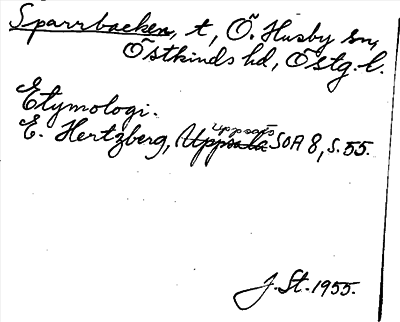 Sparrbacken, t, Ö. Husby sn,
Östkinds hd, Östg. l.
Etymologi.
E. Hertzberg, Uppsats SOA 8, s. 55.
J. St. 1955.